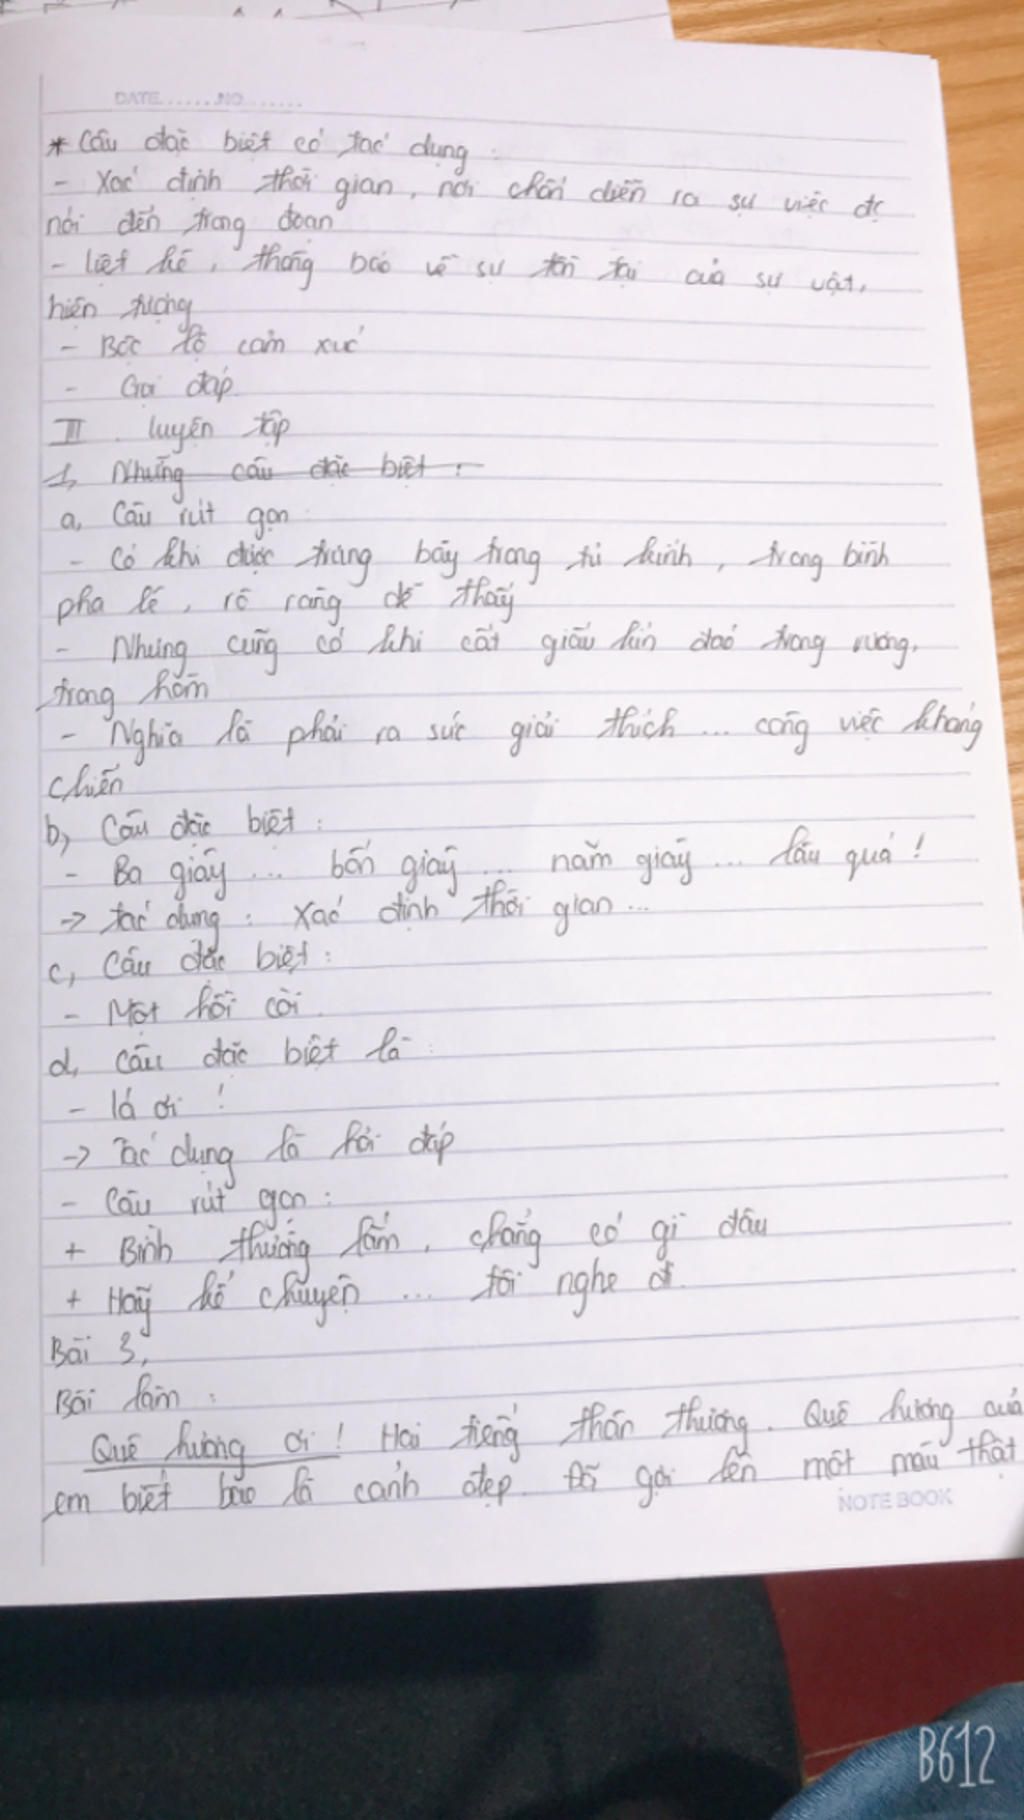 DATE.......NO.......
* Câu đặc biệt có tác dụng :
- Xác định thời gian, nơi chốn diễn ra sự việc đc
nói đến trong đoạn
- liệt kê, thông báo về sự tồn tại của sự vật,
hiện tượng
- Bộc lộ cảm xúc
- Gọi đáp
III. luyện tập
1, Những câu đặc biệt :
a, Câu rút gọn :
- Có khi được trưng bày trong tủ kính, trong bình
pha lê, rõ ràng dễ thấy
- Nhưng cũng có khi cất giấu kín đáo trong rương,
trong hòm
- Nghĩa là phải ra sức giải thích ... công việc kháng
chiến
b, Câu đặc biệt :
- Ba giây ... bốn giây ... năm giây ... lâu quá !
-> tác dụng : Xác định thời gian ...
c, Câu đặc biệt :
- Một hồi còi.
d, câu đặc biệt là :
- lá ơi !
-> Tác dụng là hỏi đáp
- Câu rút gọn :
+ Bình thường lắm, chẳng có gì đâu
+ Hãy kể chuyện ... tôi nghe đi.
Bài 3,
Bài làm :
Quê hương ơi ! Hai tiếng thân thương. Quê hương của
em biết bao là cảnh đẹp. Đã gợi lên một màu thật
NOTE BOOK
B612